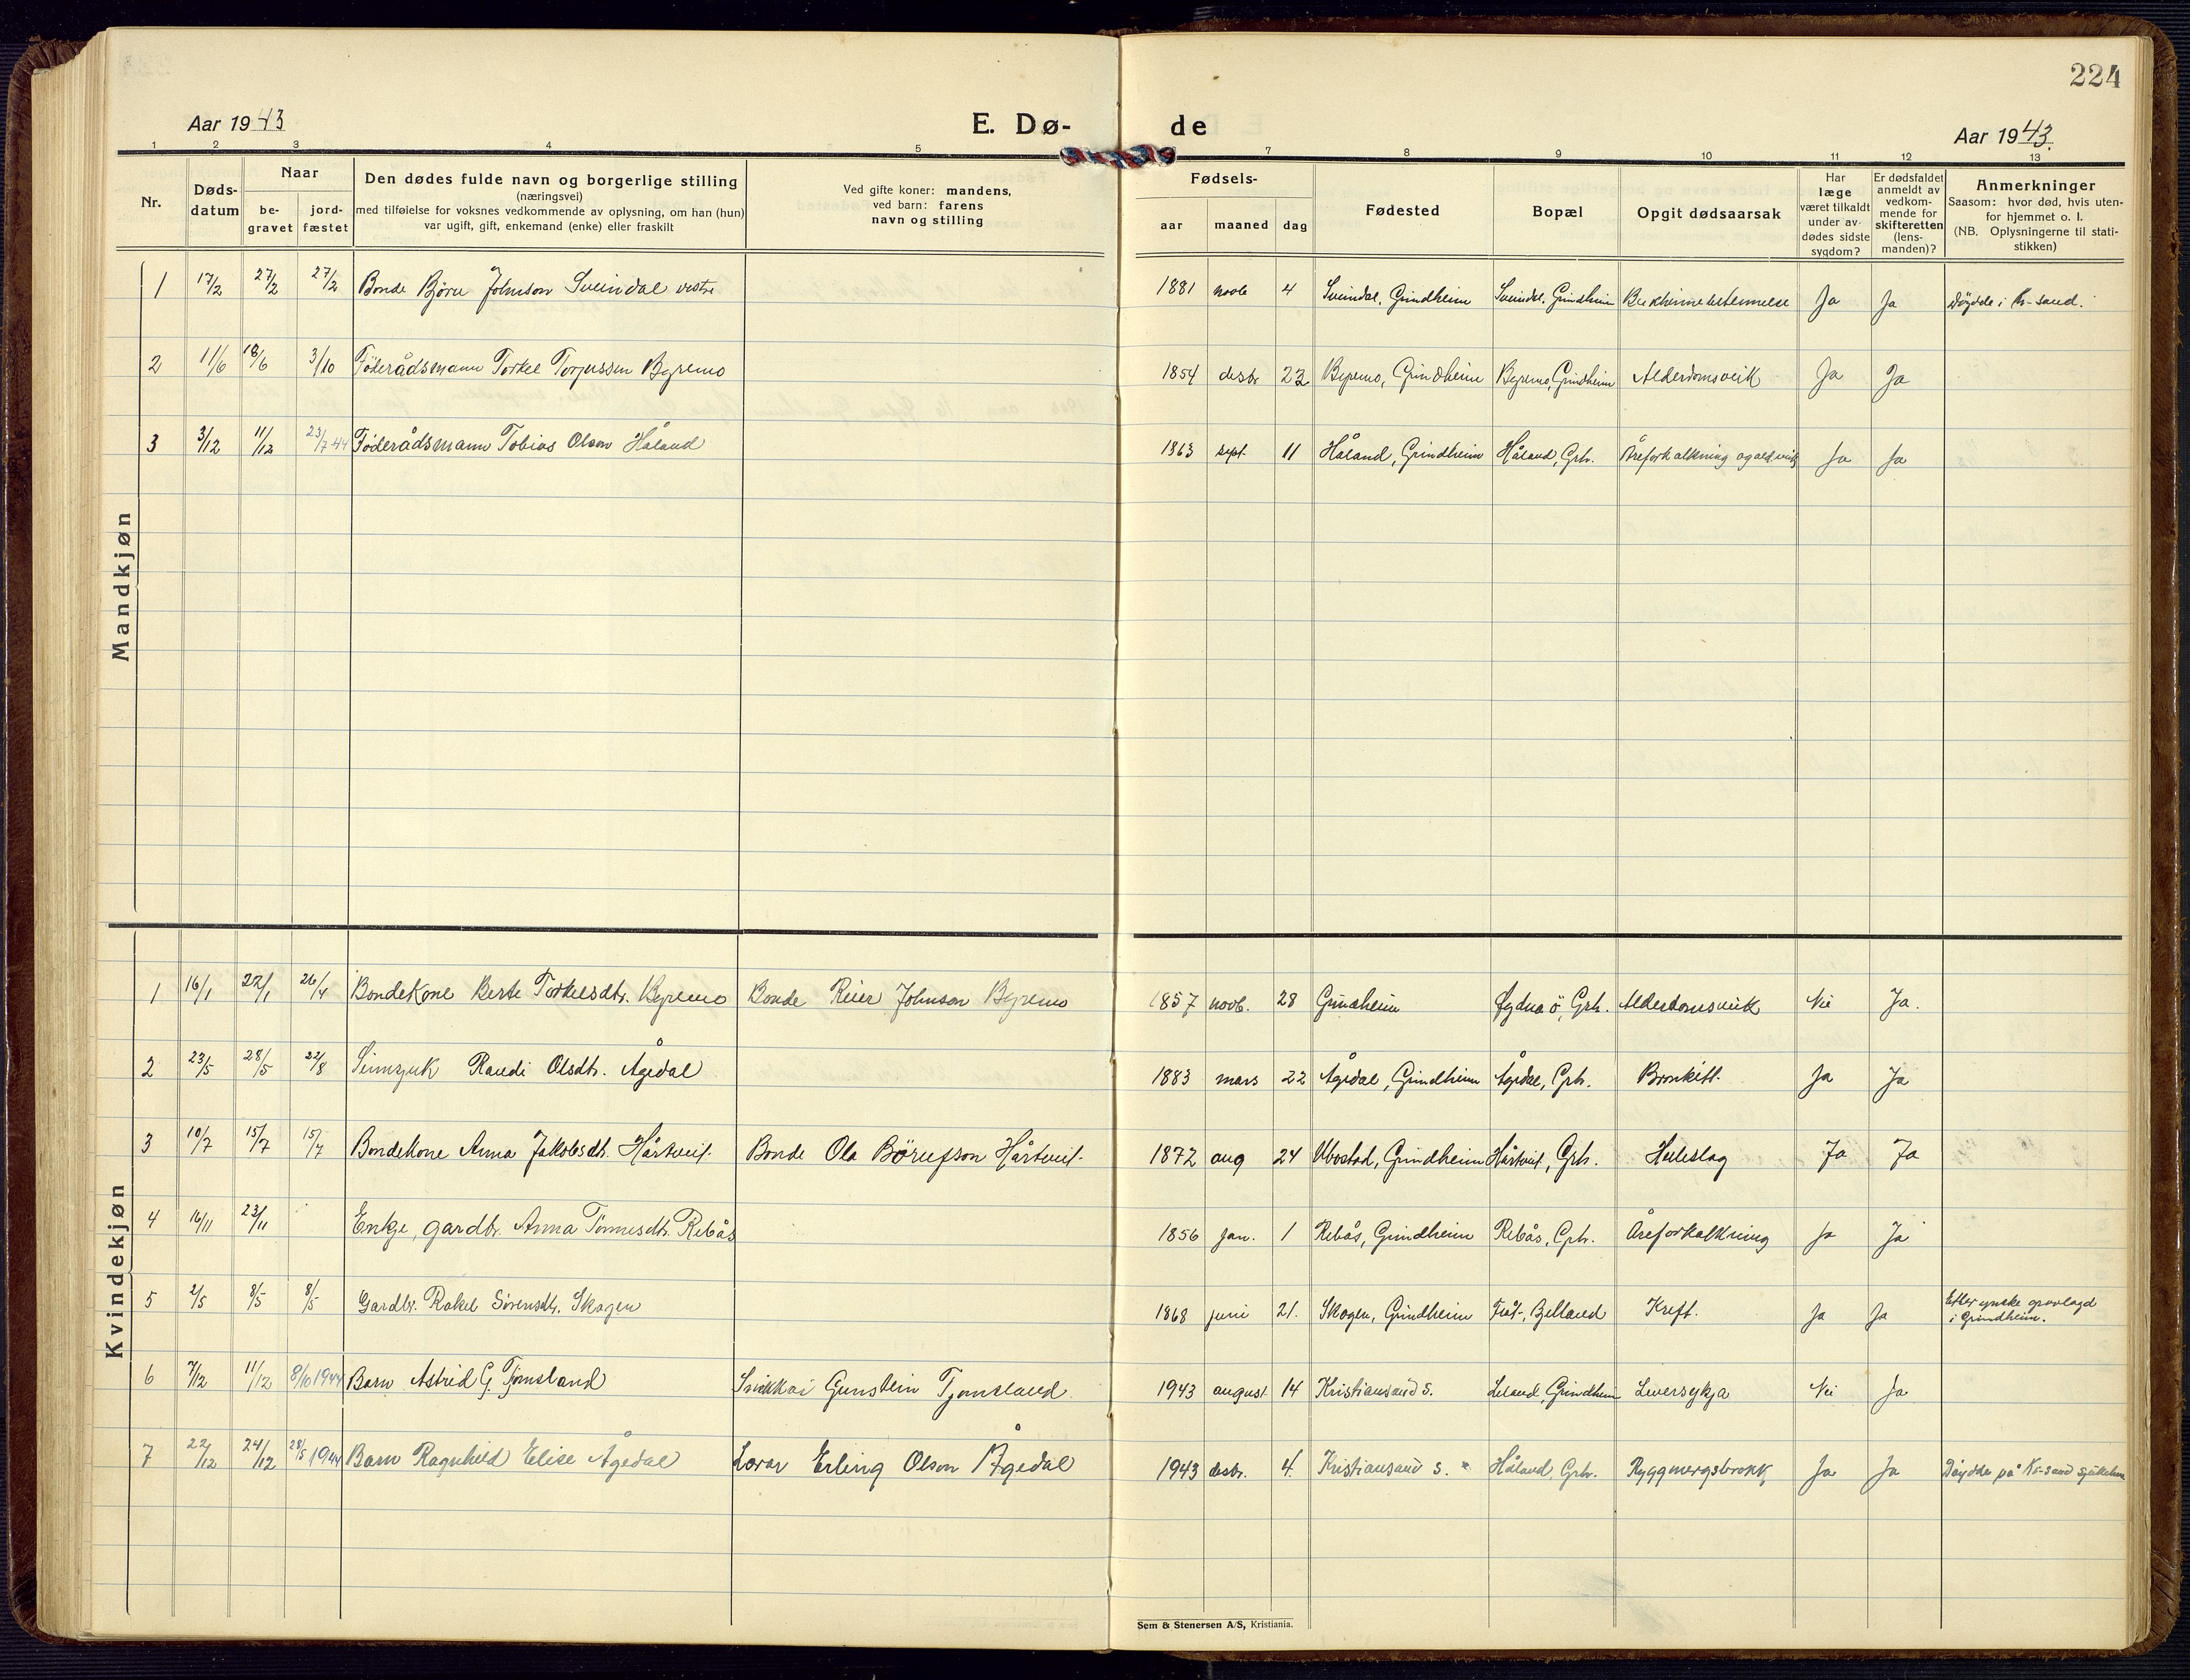 224
Aar 1943
E. Dø-
de
Aar 1943.
1 2 3 4 5 7 8 9 10 11 12 13
Nr.
Døds-
datum
Naar
be-
gravet
jord-
fæstet
Den dødes fulde navn og borgerlige stilling
(næringsvei)
med tilføielse for voksnes vedkommende av oplysning, om han (hun)
var ugift, gift, enkemand (enke) eller fraskilt
Ved gifte koner: mandens,
ved barn: farens
navn og stilling
Fødsels-
aar maaned dag
Fødested
Bopæl
Opgit dødsaarsak
Har
læge
været tilkaldt
under av-
dødes sidste
sygdom?
Er dødsfaldet
anmeldt av
vedkom-
mende for
skifteretten
(lens-
manden)?
Anmerkninger
Saasom: hvor død, hvis uten-
for hjemmet o. l.
(NB. Oplysningerne til stati-
stikken)
Mandkjøn
1 17/2 27/2 27/2 Bonde Bjørn Johnson Sveindal vestre 1881 novb 4 Sveindal, Grindheim Sveindal, Grindheim Bukhinnebetennelse Ja Ja Döydde i Kr-sand.
2 11/6 18/6 3/10 Föderådsmann Torkel Torjussen Byremo 1854 desbr 22 Byremo, Grindheim Byremo, Grindheim Alderdomsveik Ja Ja
3 3/12 11/12 23/7 44 Föderådsmann Tobias Olson Håland 1863 sept. 11 Håland, Grindheim Håland, Grh. Åreforkalkning og ald.veik Ja Ja
Kvindekjøn
1 16/1 22/1 26/4 Bondekone Berte Torkelsdtr. Byremo Bonde Reier Johnson Byremo 1857 novb. 28 Grindheim Lydna ö, Grh. Alderdomsveik Nei Ja.
2 23/5 28/5 22/8 Sinnsjuk Randi Olsdtr. Ågedal 1883 mars 22 Ågedal, Grindheim Ågedal, Grh. Bronkitt. Ja Ja
3 10/7 15/7 15/7 Bondekone Anna Jakobsdtr. Hårtveit. Bonde Ola Börufson Hårtveit. 1872 aug 24 Ubostad, Grindheim Hårtveit, Grh. Heileslag Ja Ja
4 16/11 23/11 Enkje, gardbr. Anna Tönnesdtr. Rebås 1856 jan. 1 Rebås, Grindheim Rebås, Grh. Åreforkalkning Ja Ja
5 2/5 8/5 8/5 Gardbr. Rakel Sörensdtr. Skogen 1868 juni 21. Skogen, Grindheim Bjelland Kreft. Ja Ja Etter ynske gravlagd
i Grindheim.
6 7/12 11/12 8/10 1944 Barn Astrid G. Tjomsland Snikkar Gunstein Tjomsland 1943 august 14 Kristiansand S. Leland, Grindheim Leversykja Nei Ja
7 22/12 24/12 28/5 1944 Barn Ragnhild Elise Ågedal Lærar Erling Olson Ågedal 1943 desbr. 4. Kristiansand S. Håland, Grh. Ryggmergsbrokk Ja Ja Döydde på Kr-sand sjukehus
Sem & Stenersen A/S, Kristiania.